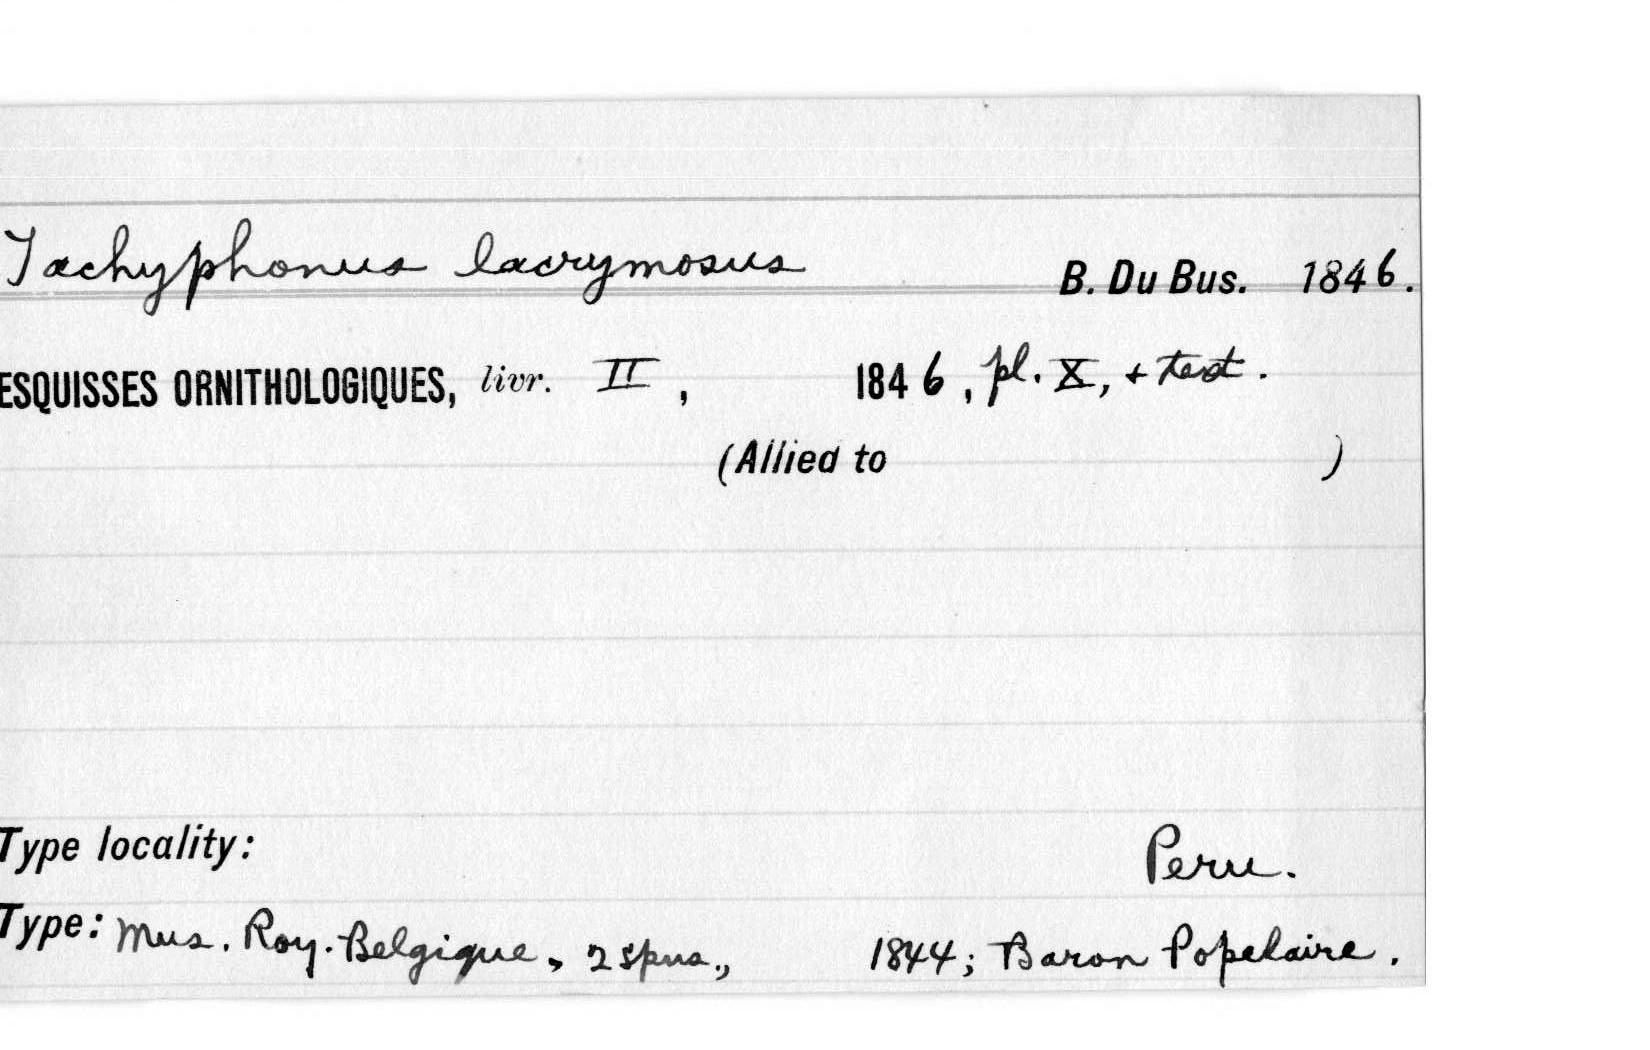 Tachyphonus lacrymosus B. Du Bus. 1846.
ESQUISSES ORNITHOLOGIQUES, livr. II, 1846, pl. X, + text.
(Allied to )
Type locality: Peru.
Type: Mus. Roy. Belgique, 2 spns., 1844; Baron Popelaire.